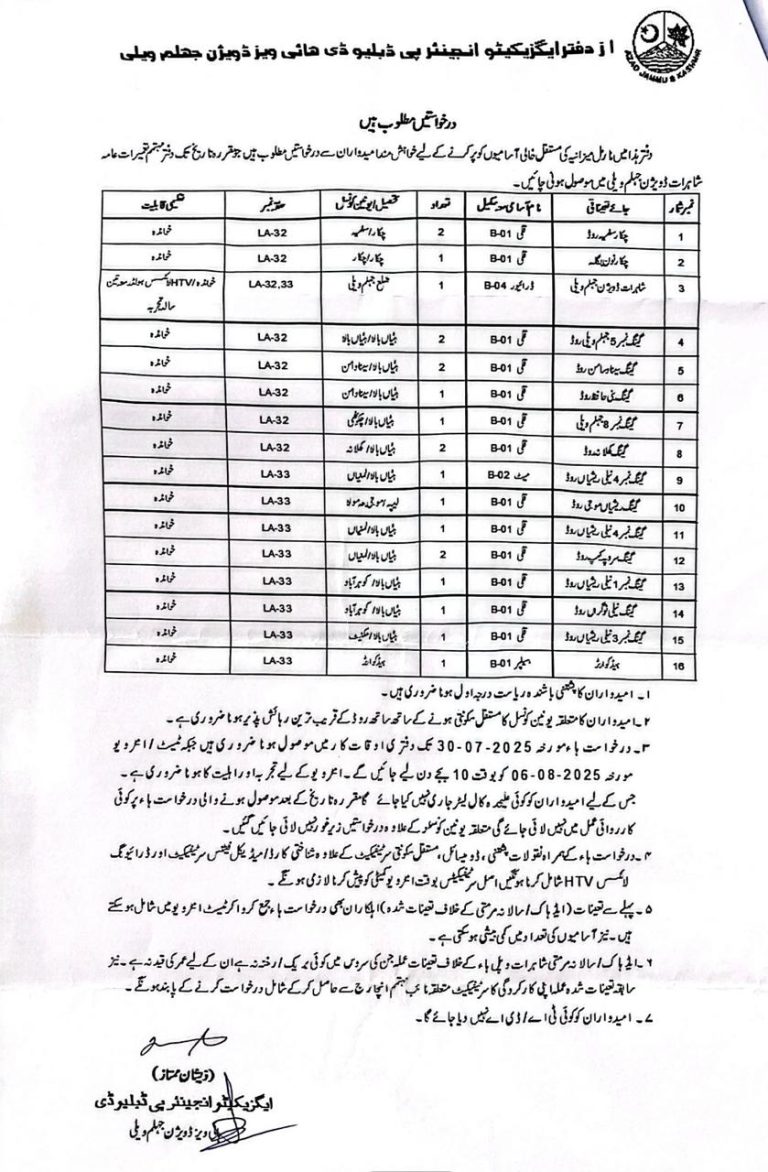 از دفتر ایگزیکیٹو انجینئر پی ڈبلیو ڈی ھائی ویز ڈویژن جھلم ویلی
AZAD JAMMU & KASHMIR
درخواستیں مطلوب ہیں
دفتر ہذا میں نارمل میزانیہ کی مستقل خالی آسامیوں کو پر کرنے کے لیے خواہش مند امیدواران سے درخواستیں مطلوب ہیں جو مقررہ تاریخ تک دفتر مہتمم تعمیرات عامہ
شاہرات ڈویژن جہلم ویلی میں موصول ہونی چائیں۔
نمبر شمار جائے تعیناتی نام آسامی معہ سکیل تعداد تحصیل / یونین کونسل حلقہ نمبر تعلیمی قابلیت
1 چکار سلمیہ روڈ قلی B-01 2 چکار/سلمیہ LA-32 خواندہ
2 چکار نون بنگلہ قلی B-01 1 چکار/چکار LA-32 خواندہ
3 شاہرات ڈویژن جہلم ویلی ڈرائیور B-04 1 ضلع جہلم ویلی LA-32,33 خواندہ/HTV لائسنس ہولڈر معہ تین
سالہ تجربہ
4 گینگ نمبر 5 جہلم ویلی روڈ قلی B-01 2 ہٹیاں بالا/ہٹیاں بالا LA-32 خواندہ
5 گینگ سینادامن روڈ قلی B-01 2 ہٹیاں بالا/سینادامن LA-32 خواندہ
6 گینگ بنی حافظ روڈ قلی B-01 1 ہٹیاں بالا/سینادامن LA-32 خواندہ
7 گینگ نمبر 8 جہلم ویلی قلی B-01 1 ہٹیاں بالا/چکوٹھی LA-32 خواندہ
8 گینگ کھلانہ روڈ قلی B-01 2 ہٹیاں بالا/کھلانہ LA-32 خواندہ
9 گینگ نمبر 4 نیلی ریشیاں روڈ میٹ B-02 1 ہٹیاں بالا/لمنیاں LA-33 خواندہ
10 گینگ ریشیاں موجی روڈ قلی B-01 1 لیپہ/موجی LA-33 خواندہ
11 گینگ نمبر 4 نیلی ریشیاں روڈ قلی B-01 1 ہٹیاں بالا/لمنیاں LA-33 خواندہ
12 گینگ کیمپ روڈ قلی B-01 2 ہٹیاں بالا/لمنیاں LA-33 خواندہ
13 گینگ نمبر 1 نیلی ریشیاں روڈ قلی B-01 1 ہٹیاں بالا/گوہرآباد LA-33 خواندہ
14 گینگ نیلی روڈ قلی B-01 1 ہٹیاں بالا/گوہرآباد LA-33 خواندہ
15 گینگ نمبر 3 نیلی ریشیاں روڈ قلی B-01 1 ہٹیاں بالا LA-33 خواندہ
16 ہیڈکوارٹر ہیلپر B-01 1 ہیڈکوارٹر LA-33 خواندہ
۱۔ امیدواران کا پشتنی باشندہ ریاست درجہ اول ہونا ضروری ہیں۔
۲۔ امیدواران کا متعلقہ یونین کونسل کا مستقل سکونتی ہونے کے ساتھ ساتھ روڈ کے قریب ترین رہائش پذیر ہونا ضروری ہے۔
۳۔ درخواست ہاء مورخہ 30-07-2025 تک دفتری اوقات کار میں موصول ہونا ضروری ہیں جبکہ ٹیسٹ / انٹرویو
مورخہ 06-08-2025 کو بوقت 10 بجے دن لیے جائیں گے۔ انٹرویو کے لیے تجربہ اور اہلیت کا ہونا ضروری ہے۔
جس کے لیے امیدواران کو کوئی علیحدہ کال لیٹر جاری نہیں کیا جائے گا مقررہ تاریخ کے بعد موصول ہونے والی درخواست ہاء پر کوئی
کارروائی عمل میں نہیں لائی جائے گی متعلقہ یونین کونسلز کے علاوہ درخواستیں زیر غور نہیں لائی جائیں گئیں۔
۴۔ درخواست ہاء کے ہمراہ نقولات پشتنی، ڈومیسائل، مستقل سکونتی سرٹیفکیٹ کے علاوہ شناختی کارڈ/میڈیکل فٹنس سرٹیفکیٹ اور ڈرائیونگ
لائسنس HTV شامل کرنا ہونگیں اصل سرٹیفکیٹس بوقت انٹرویو کمیٹی کو پیش کرنا لازمی ہونگے۔
۵۔ پہلے سے تعینات (ایڈہاک/سالانہ مرمتی کے خلاف تعینات شدہ) اہلکاران بھی درخواست ہاء جمع کروا کر ٹیسٹ انٹرویو میں شامل ہو سکتے
ہیں۔ نیز آسامیوں کی تعداد میں کمی بیشی ہو سکتی ہے۔
۶۔ ایڈہاک/سالانہ مرمتی شاہرات و پلی ہاء کے خلاف تعینات عملہ جن کی سروس میں کوئی بریک/رخنہ نہ ہے ان کے لیے عمر کی قید نہ ہے۔ نیز
سابقہ تعینات شدہ عملہ اپنی کارکردگی کا سرٹیفکیٹ متعلقہ نائب مہتمم انچارج سے حاصل کر کے شامل درخواست کرنے کے پابند ہونگے۔
۷۔ امیدواران کو کوئی ٹی اے/ڈی اے نہیں دیا جائے گا۔
(ذیشان ممتاز)
ایگزیکیٹو انجینئر پی ڈبلیو ڈی
ہائی ویز ڈویژن جہلم ویلی